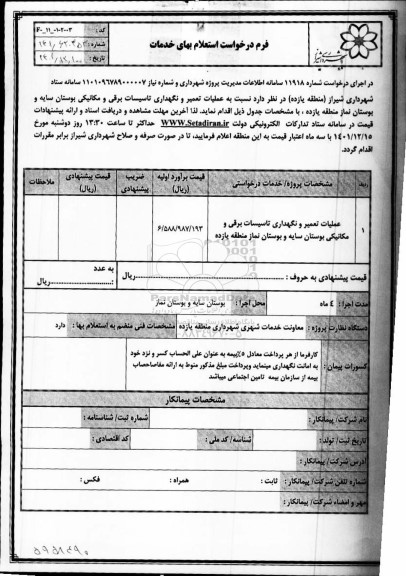 فرم درخواست استعلام بهای خدمات
کد :
شماره :
تاریخ :
در اجرای درخواست شماره ۱۱۹۱۸ سامانه اطلاعات مدیریت پروژه شهرداری و شماره نیاز ۱۱۰۱۰۹۶۷۸۹۰۰۰۰۰۷ سامانه ستاد
شهرداری شیراز (منطقه یازده) در نظر دارد نسبت به عملیات تعمیر و نگهداری تاسیسات برقی و مکانیکی بوستان سایه و
بوستان نماز منطقه یازده ، با مشخصات جدول ذیل اقدام نماید. لذا آخرین مهلت مشاهده و دریافت اسناد و ارائه پیشنهادات
قیمت در سامانه ستاد تدارکات الکترونیکی دولت WWW.Setadiran.ir حداکثر تا ساعت ۱۳:۳۰ روز دوشنبه مورخ
۱۴۰۱/۱۲/۱۵ با سه ماه اعتبار قیمت به این منطقه اعلام فرمایید، تا در صورت صرفه و صلاح شهرداری شیراز برابر مقررات
اقدام گردد.
مشخصات پروژه/ خدمات درخواستی
قیمت برآورد اولیه (ریال)
ضریب پیشنهادی
قیمت پیشنهادی (ریال)
ملاحظات
۱
عملیات تعمیر و نگهداری تاسیسات برقی و
مکانیکی بوستان سایه و بوستان نماز منطقه یازده
۶/۵۸۸/۹۸۷/۱۹۳
قیمت پیشنهادی به حروف : ریال
به عدد : ریال
مدت اجرا : ٤ ماه
محل اجرا : بوستان سایه و بوستان نماز
دستگاه نظارت پروژه : معاونت خدمات شهری شهرداری منطقه یازده
مشخصات فنی منضم به استعلام بها : دارد
کسورات پیمان :
کارفرما از هر پرداخت معادل ۵٪ بیمه به عنوان علی الحساب کسر و نزد خود
به امانت نگهداری مینماید وپرداخت مبلغ مذکور منوط به ارائه مفاصاحساب
بیمه از سازمان بیمه تامین اجتماعی میباشد
مشخصات پیمانکار
نام شرکت/ پیمانکار :
شماره ثبت/ شناسنامه :
تاریخ ثبت/ تولد :
شناسه/ کد ملی :
کد اقتصادی :
آدرس شرکت/ پیمانکار :
شماره تلفن شرکت/ پیمانکار :
ثابت :
همراه :
فکس :
مهر و امضاء شرکت/ پیمانکار :